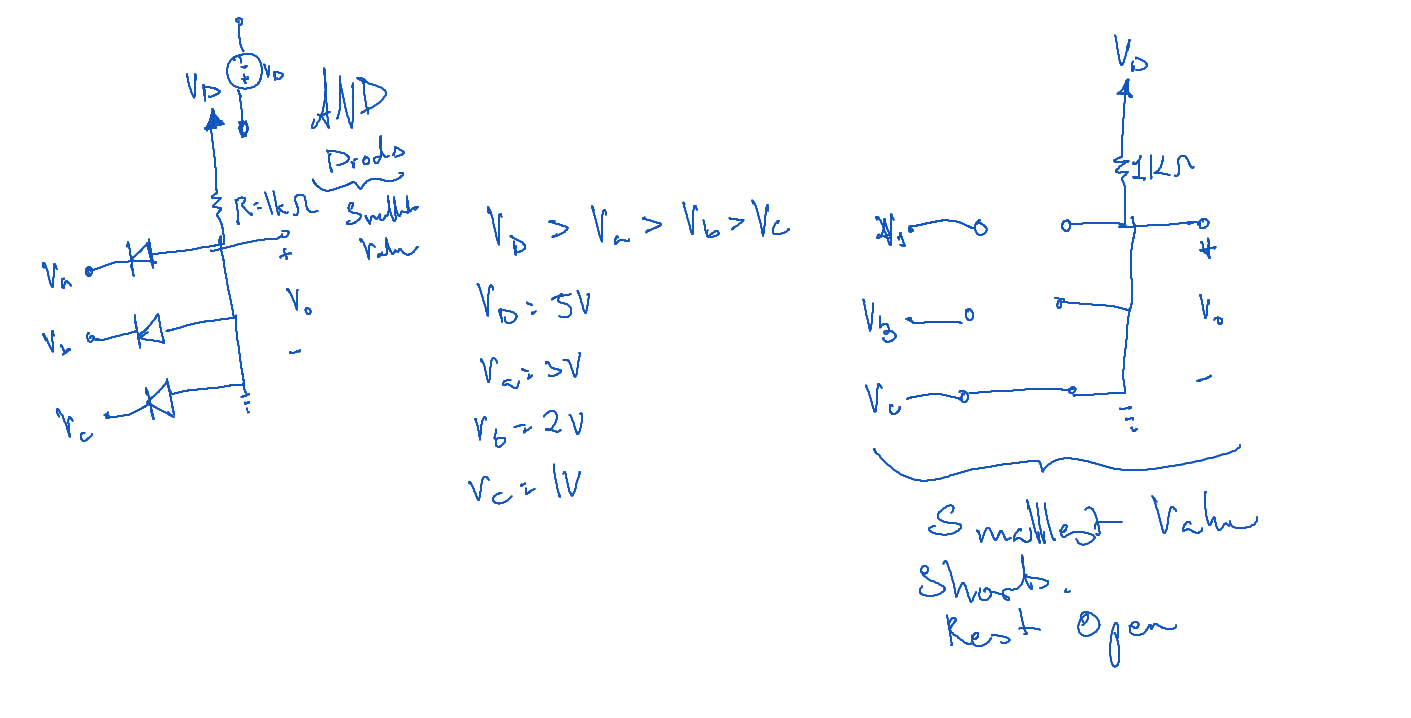 V_D
V_D
AND
Diodes
R=1kΩ
Smallest
Value
V_a
V_b
V_c
+
V_o
-
V_D > V_a > V_b > V_c
V_D = 5V
V_a = 3V
V_b = 2V
V_c = 1V
V_D
1kΩ
V_b
V_c
+
V_o
-
Smallest Value
Shorts.
Rest Open